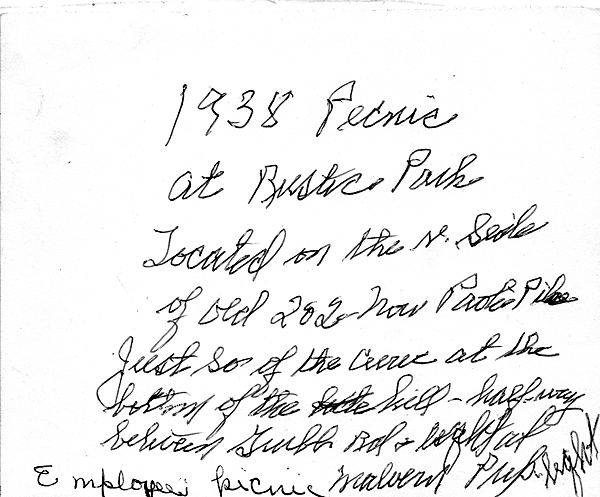 1938 Picnic
at Rustic Park
Located on the N. Side
of old 202 now Paoli Pike
Just So of the curve at the
bottom of the hill - half-way
between Bvd & light at
Employees picnic Malvern Prep. light